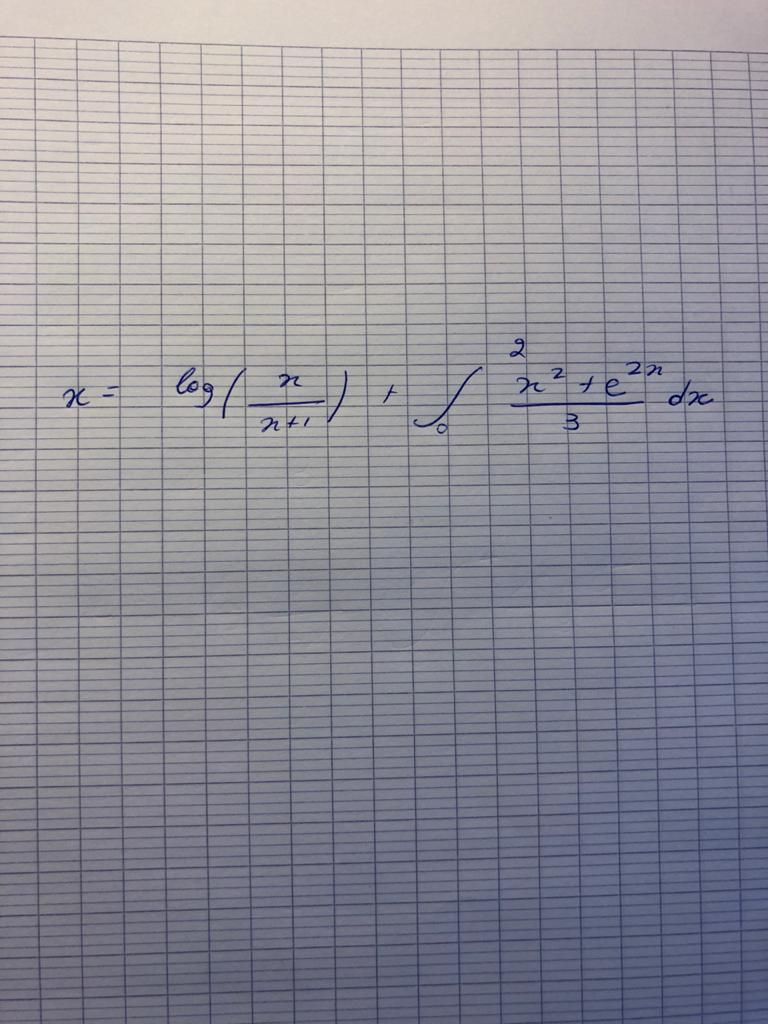 x = log(x/(x+1)) + ∫₀² (x² + e^(2x))/3 dx